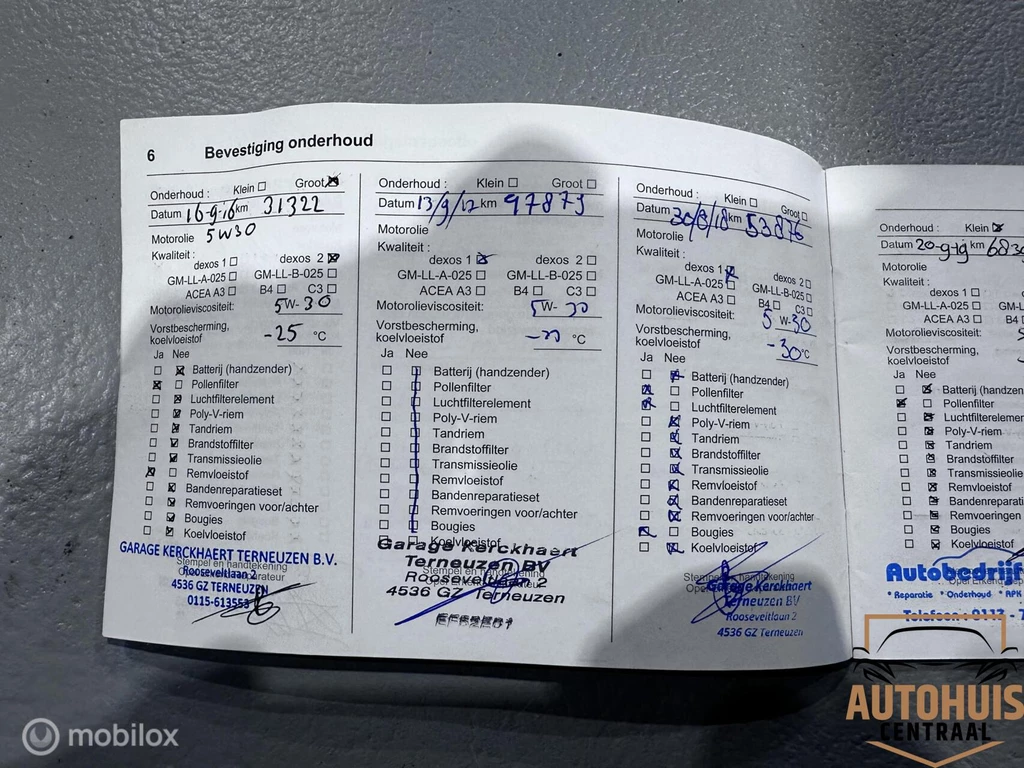 6 Bevestiging onderhoud
Onderhoud : Klein Groot
Datum 16-9-16 km 31322
Motorolie 5W30
Kwaliteit :
dexos 1 dexos 2
GM-LL-A-025 GM-LL-B-025
ACEA A3 B4 C3
Motorolieviscositeit: 5W-30
Vorstbescherming,
koelvloeistof -25 °C
Ja Nee
Batterij (handzender)
Pollenfilter
Luchtfilterelement
Poly-V-riem
Tandriem
Brandstoffilter
Transmissieolie
Remvloeistof
Bandenreparatieset
Remvoeringen voor/achter
Bougies
Koelvloeistof
GARAGE KERCKHAERT TERNEUZEN B.V.
Stempel en handtekening
Rooseveltlaan 2
4536 GZ TERNEUZEN
0115-613553
Onderhoud : Klein Groot
Datum 13/9/17 km 97873
Motorolie
Kwaliteit :
dexos 1 dexos 2
GM-LL-A-025 GM-LL-B-025
ACEA A3 B4 C3
Motorolieviscositeit: 5W-30
Vorstbescherming,
koelvloeistof °C
Ja Nee
Batterij (handzender)
Pollenfilter
Luchtfilterelement
Poly-V-riem
Tandriem
Brandstoffilter
Transmissieolie
Remvloeistof
Bandenreparatieset
Remvoeringen voor/achter
Bougies
Koelvloeistof
Garage Kerckhaert
Terneuzen BV
Stempel en handtekening
Rooseveltlaan 2
4536 GZ Terneuzen
Onderhoud : Klein Groot
Datum 30/8/18 km 53876
Motorolie
Kwaliteit :
dexos 1 dexos 2
GM-LL-A-025 GM-LL-B-025
ACEA A3 B4 C3
Motorolieviscositeit: 5 W-30
Vorstbescherming,
koelvloeistof -30 °C
Ja Nee
Batterij (handzender)
Pollenfilter
Luchtfilterelement
Poly-V-riem
Tandriem
Brandstoffilter
Transmissieolie
Remvloeistof
Bandenreparatieset
Remvoeringen voor/achter
Bougies
Koelvloeistof
Stempel en handtekening
Garage Kerckhaert
Terneuzen BV
Rooseveltlaan 2
4536 GZ Terneuzen
Onderhoud : Klein
Datum 20-9-19 km
Motorolie
Kwaliteit :
dexos 1
GM-LL-A-025
ACEA A3 B4
Motorolieviscositeit:
Vorstbescherming,
koelvloeistof
Ja Nee
Batterij (handzen
Pollenfilter
Luchtfilterelement
Poly-V-riem
Tandriem
Brandstoffilter
Transmissieolie
Remvloeistof
Bandenreparati
Remvoeringen
Bougies
Koelvloeistof
Autobedrijf
* Reparatie * Onderhoud * APK
Telefoon: 0113 - 7
AUTOHUIS
CENTRAAL
mobilox